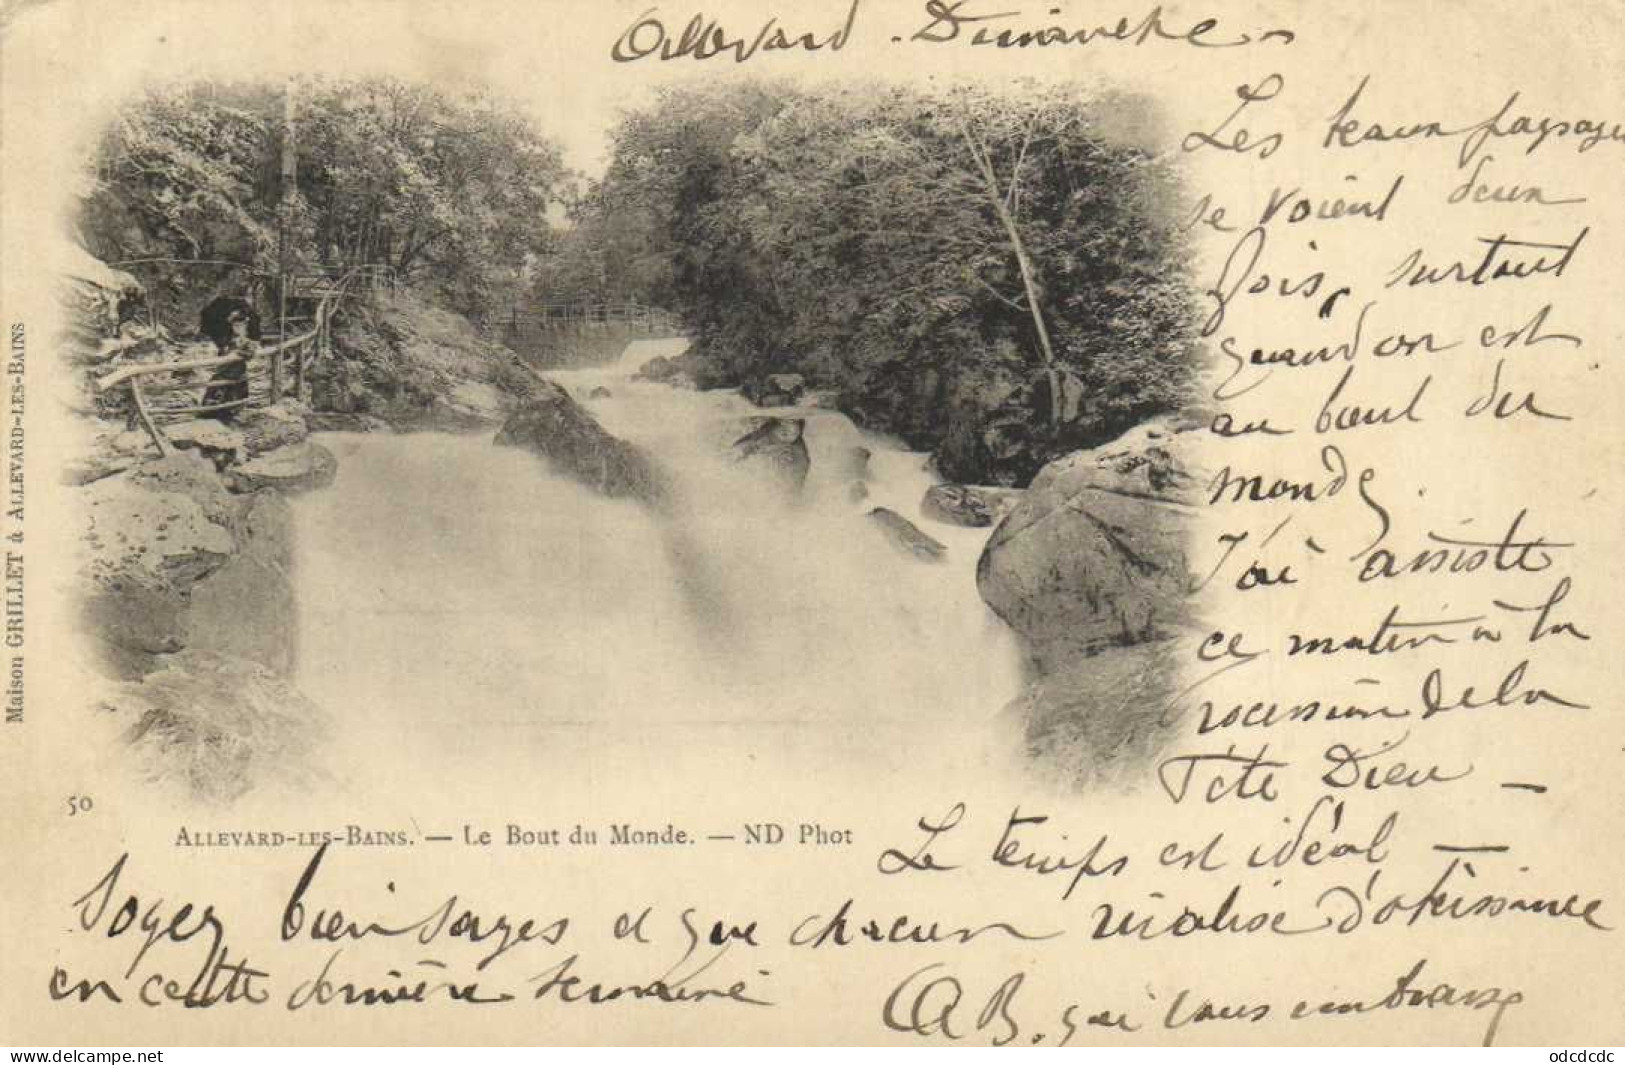 Allevard. Dimanche -
Les beaux paysages
se voient deux
fois, surtout
quand on est
au bout du
monde.
J'ai assisté
ce matin à la
rocession de la
Fête Dieu -
Le temps est idéal -
Soyez bien sages et que chacun rivalise d'obéissance
en cette dernière semaine
AB. qui vous embrasse
Maison GRILLET à ALLEVARD-LES-BAINS
50
ALLEVARD-LES-BAINS. — Le Bout du Monde. — ND Phot
www.delcampe.net
odcdcdc